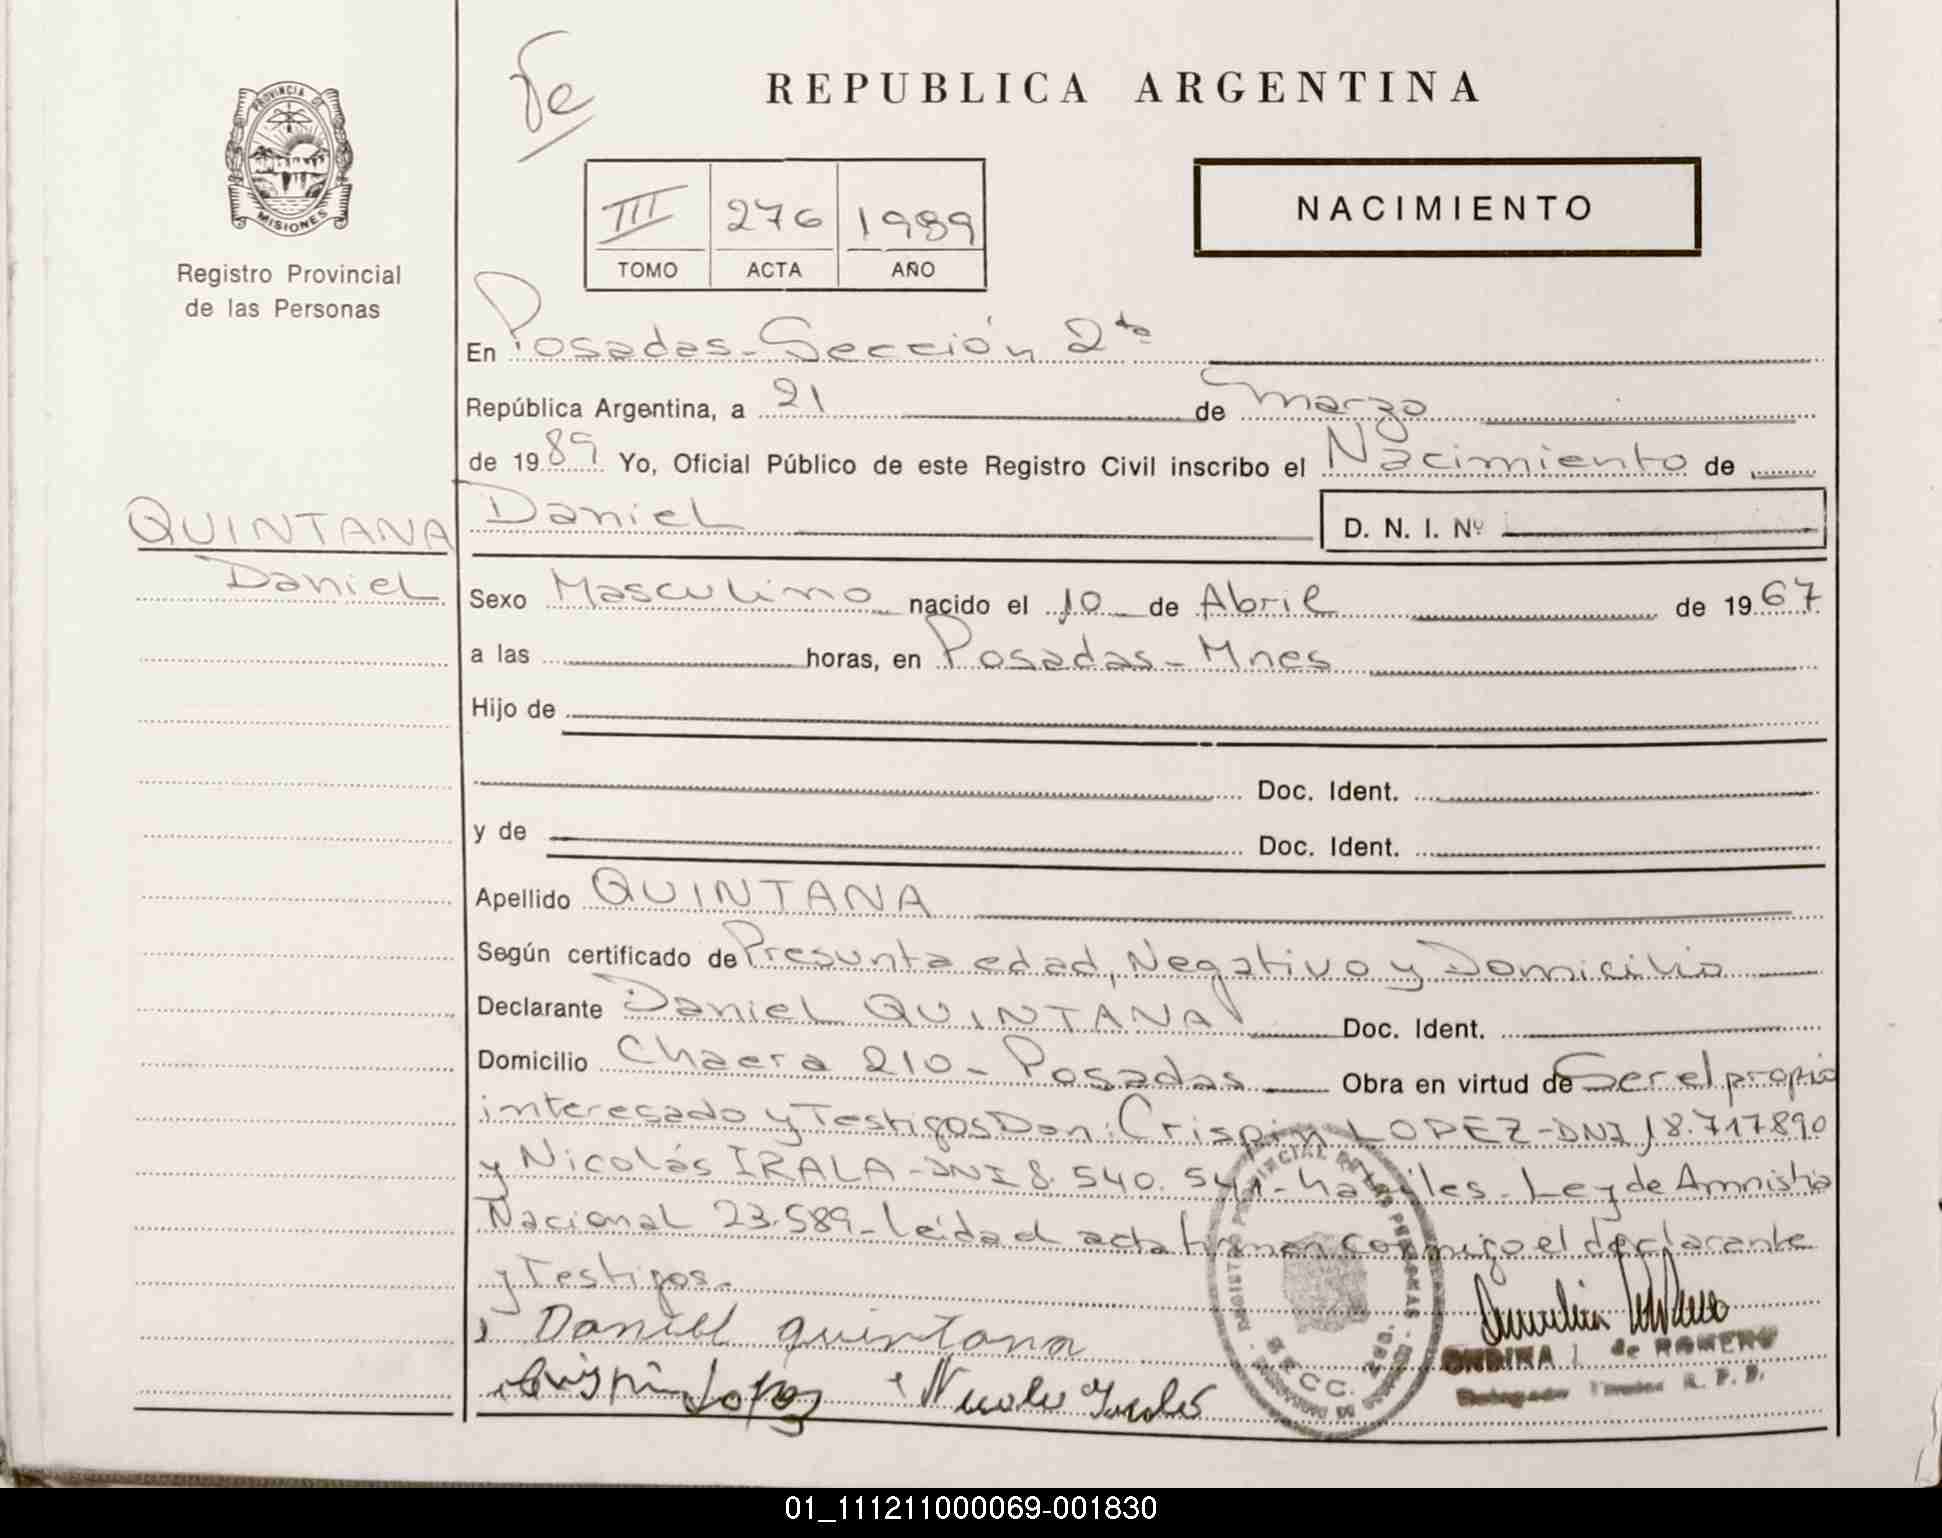 Te
REPUBLICA ARGENTINA
PROVINCIA DE
MISIONES
Registro Provincial
de las Personas
III 276 1989
TOMO ACTA AÑO
NACIMIENTO
En Posadas - Sección 2da
República Argentina, a 21 de Marzo
de 1989 Yo, Oficial Público de este Registro Civil inscribo el Nacimiento de
QUINTANA
Daniel
Daniel D. N. I. Nº
Sexo Masculino nacido el 10 de Abril de 1967
a las horas, en Posadas - Mnes
Hijo de
Doc. Ident.
y de Doc. Ident.
Apellido QUINTANA
Según certificado de Presunta edad, Negativo y Domicilio
Declarante Daniel QUINTANA Doc. Ident.
Domicilio Chacra 210 - Posadas Obra en virtud de Ser el propio
interesado y Testigos Don: Crispín LOPEZ - DNI 18.717890
y Nicolás IRALA - DNI 8.540.541 - hábiles - Ley de Amnistía
Nacional 23.589 - leída el acta firman conmigo el declarante
y Testigos.
Daniel quintana
Crispin Lopez
SECC. 2da.
de ROMERO
R. P. P.
01_111211000069-001830